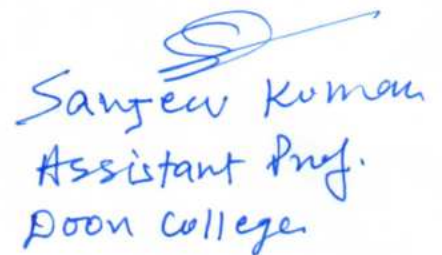 Sanjeev Kumar
Assistant Prof.
Doon College